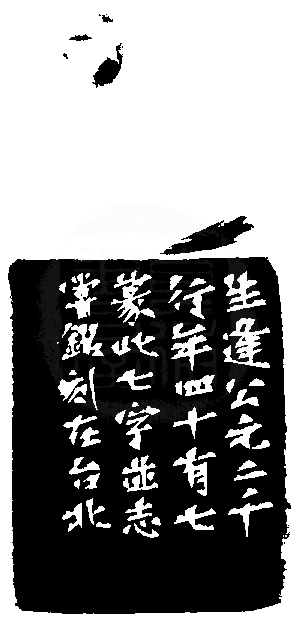 生逢公元二千
行年四十有七
篆此七字並志
嘗銘刻在台北